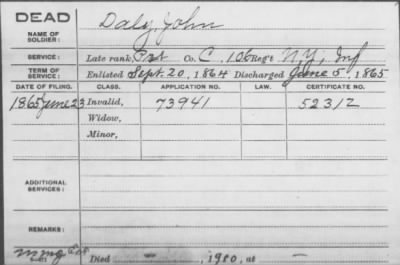 DEAD
NAME OF SOLDIER: Daly, John
SERVICE: Late rank, Pvt Co. C, 106 Reg't N.Y. Inf
TERM OF SERVICE: Enlisted Sept. 20, 1864 Discharged June 5, 1865
DATE OF FILING. CLASS. APPLICATION NO. LAW. CERTIFICATE NO.
1865 June 23 Invalid, 73941 52312
Widow,
Minor,
ADDITIONAL SERVICES:
REMARKS:
Died –, 1900, at –